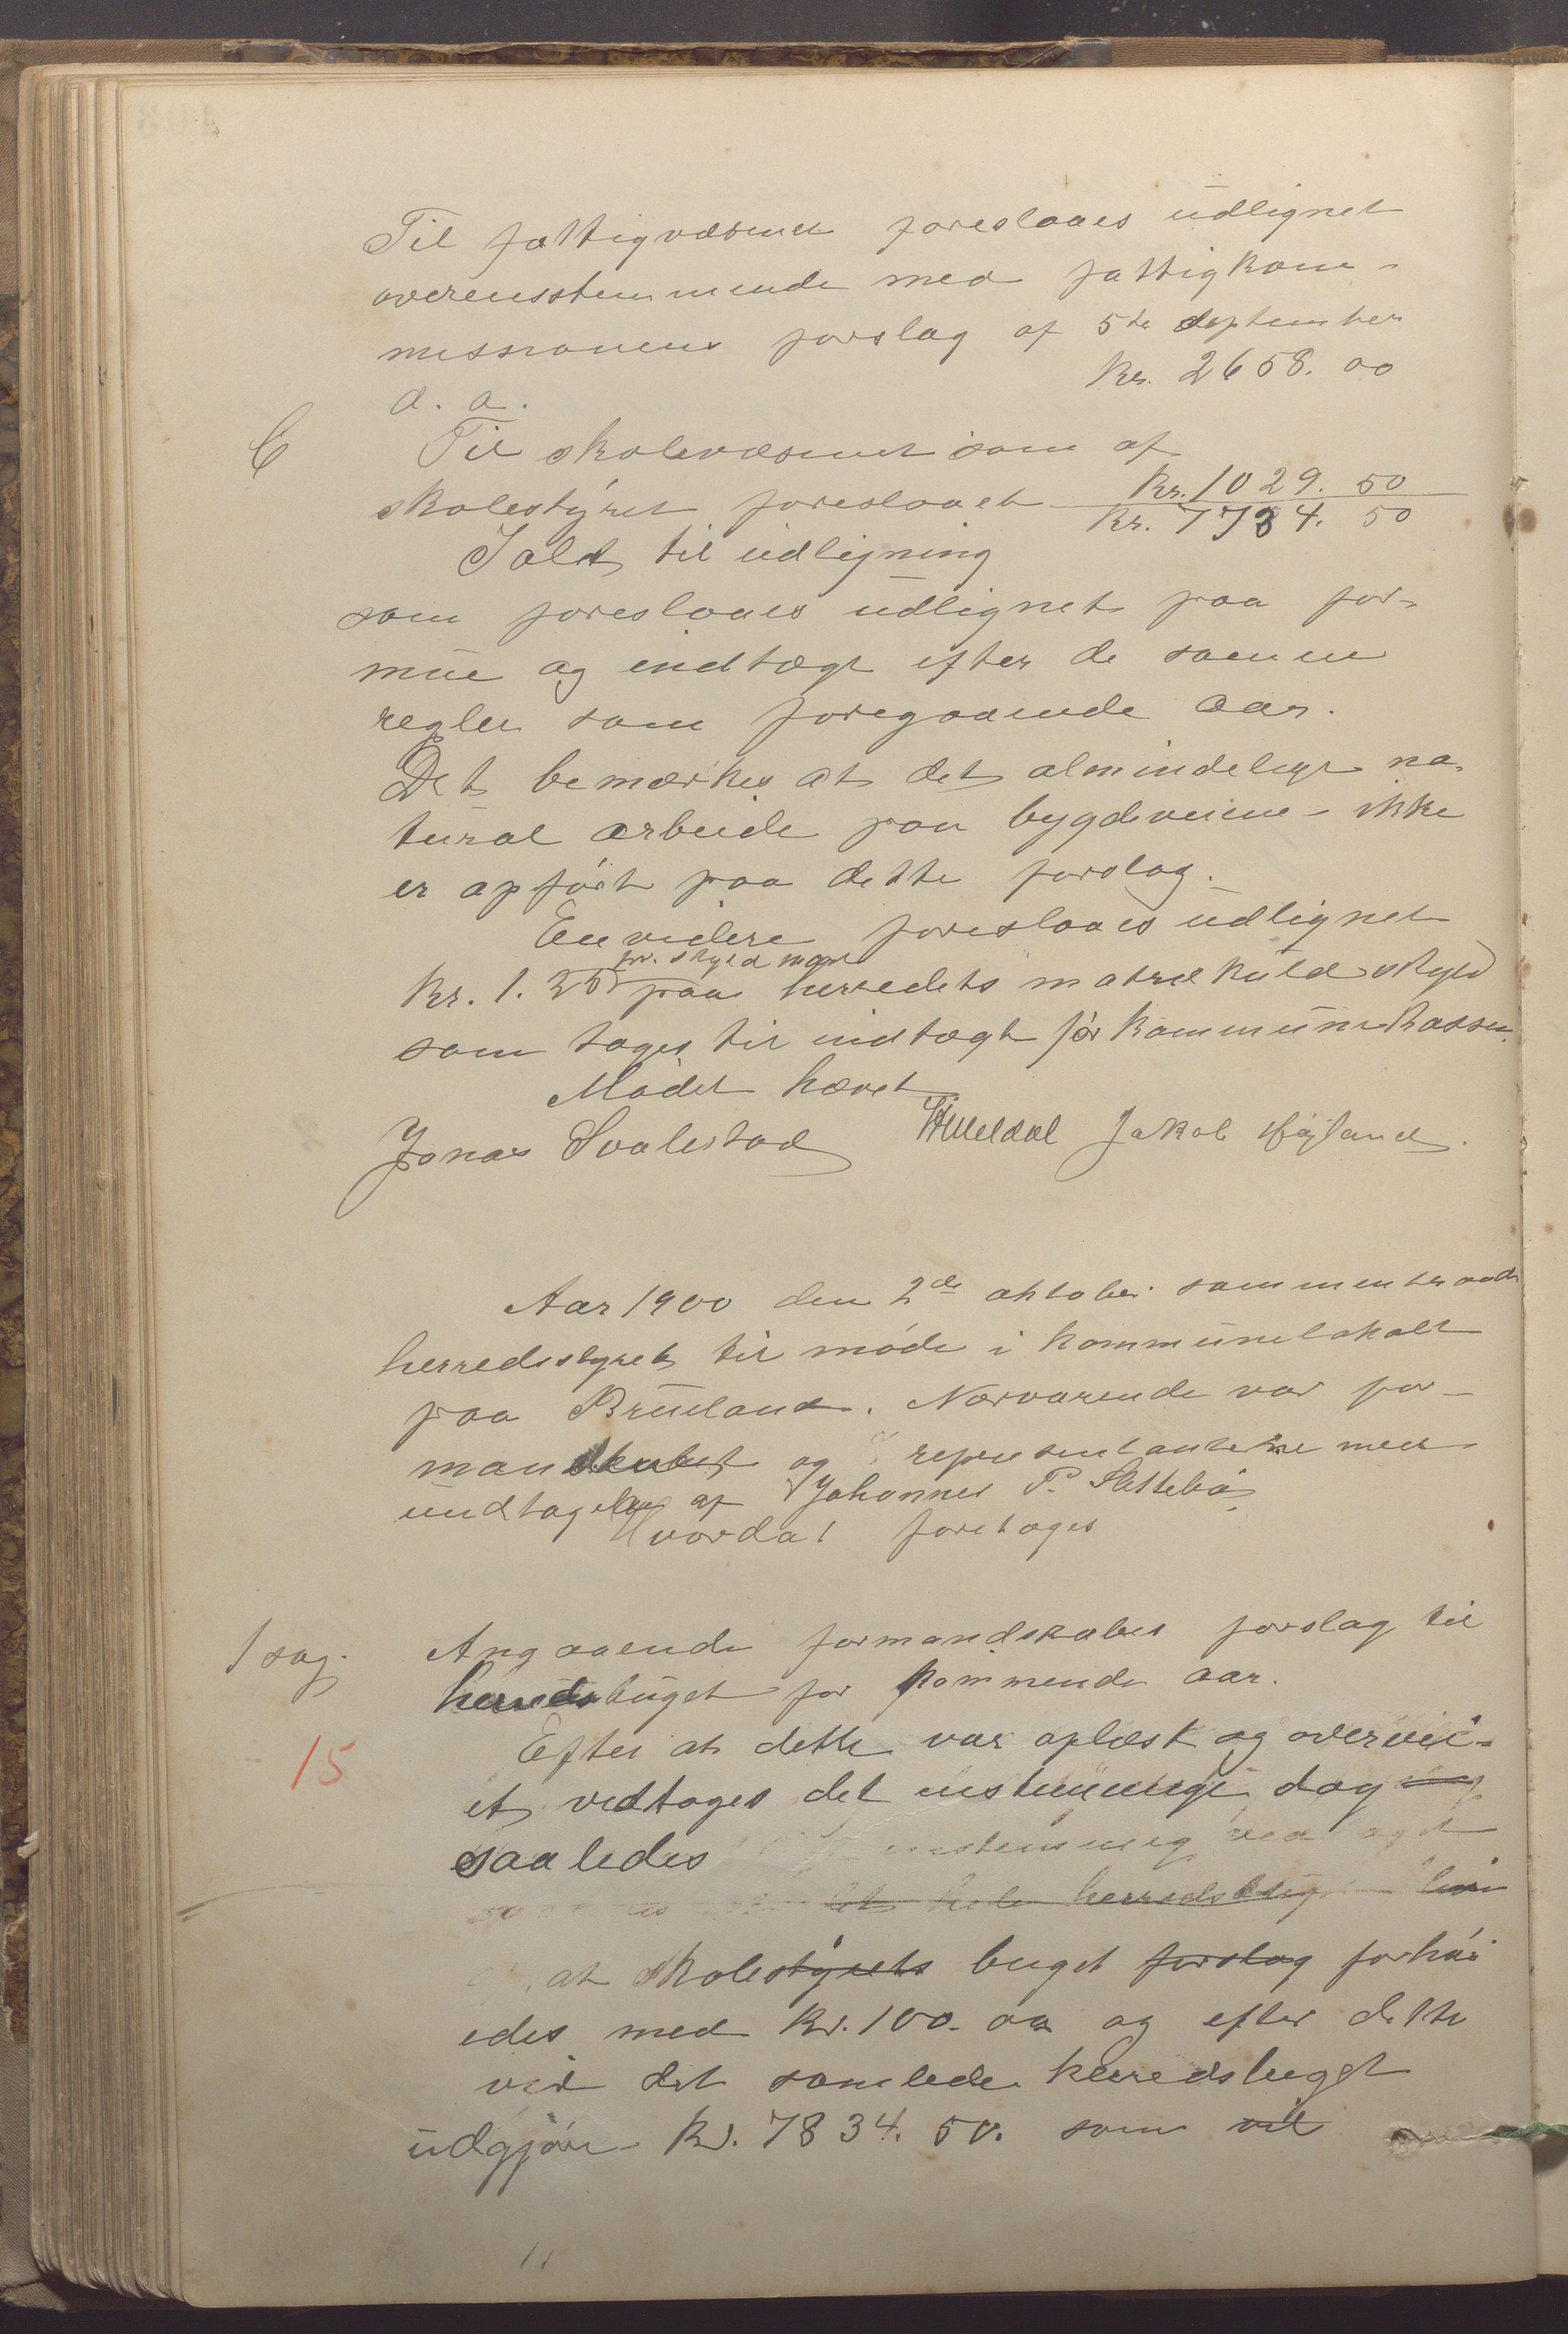 Til fattigvæsenet foreslaaes udlignet
overensstemmende med fattigkom-
missionens forslag af 5te september
d. a. Kr. 2658. 00
C Til skolevæsenet som af
skolestyret foreslaaet Kr. 1029. 50
Ialt til udligning Kr. 7734. 50
som foreslaaes udlignet paa for-
mue og indtægt efter de samme
regler som foregaaende aar.
Det bemærkes at det almindelige na-
tural arbeide paa bygdeveiene - ikke
er opført paa dette forslag.
Envidere foreslaaes udlignet
pr. skyld mark
Kr. 1. 25 paa herredets matrikulskyld
som tages til indtægt for kommunekassen.
Mødet hævet
Jonas Svalestad Hueldal Jakob Høiland.
Aar 1900 den 2de oktober sammentraadte
herredsstyret til møde i kommunelokalet
paa Brueland. Nærværende var for-
mandskabet og representanterne med
undtagelse af Johannes P. Slettebø
Hvorda! foretoges
1 sag. Angaaende formandskabets forslag til
herredsbuget for kommende aar.
15 Efter at dette var oplæst og overvei-
et vedtoges det enstemmige dog
saaledes enstemmig
det hele herredsbuget
at skolestyrets buget forslag forhøi
edes med Kr. 100. 00 og efter dette
vil det samlede herredsbuget
udgjøre Kr. 7834. 50. som vil